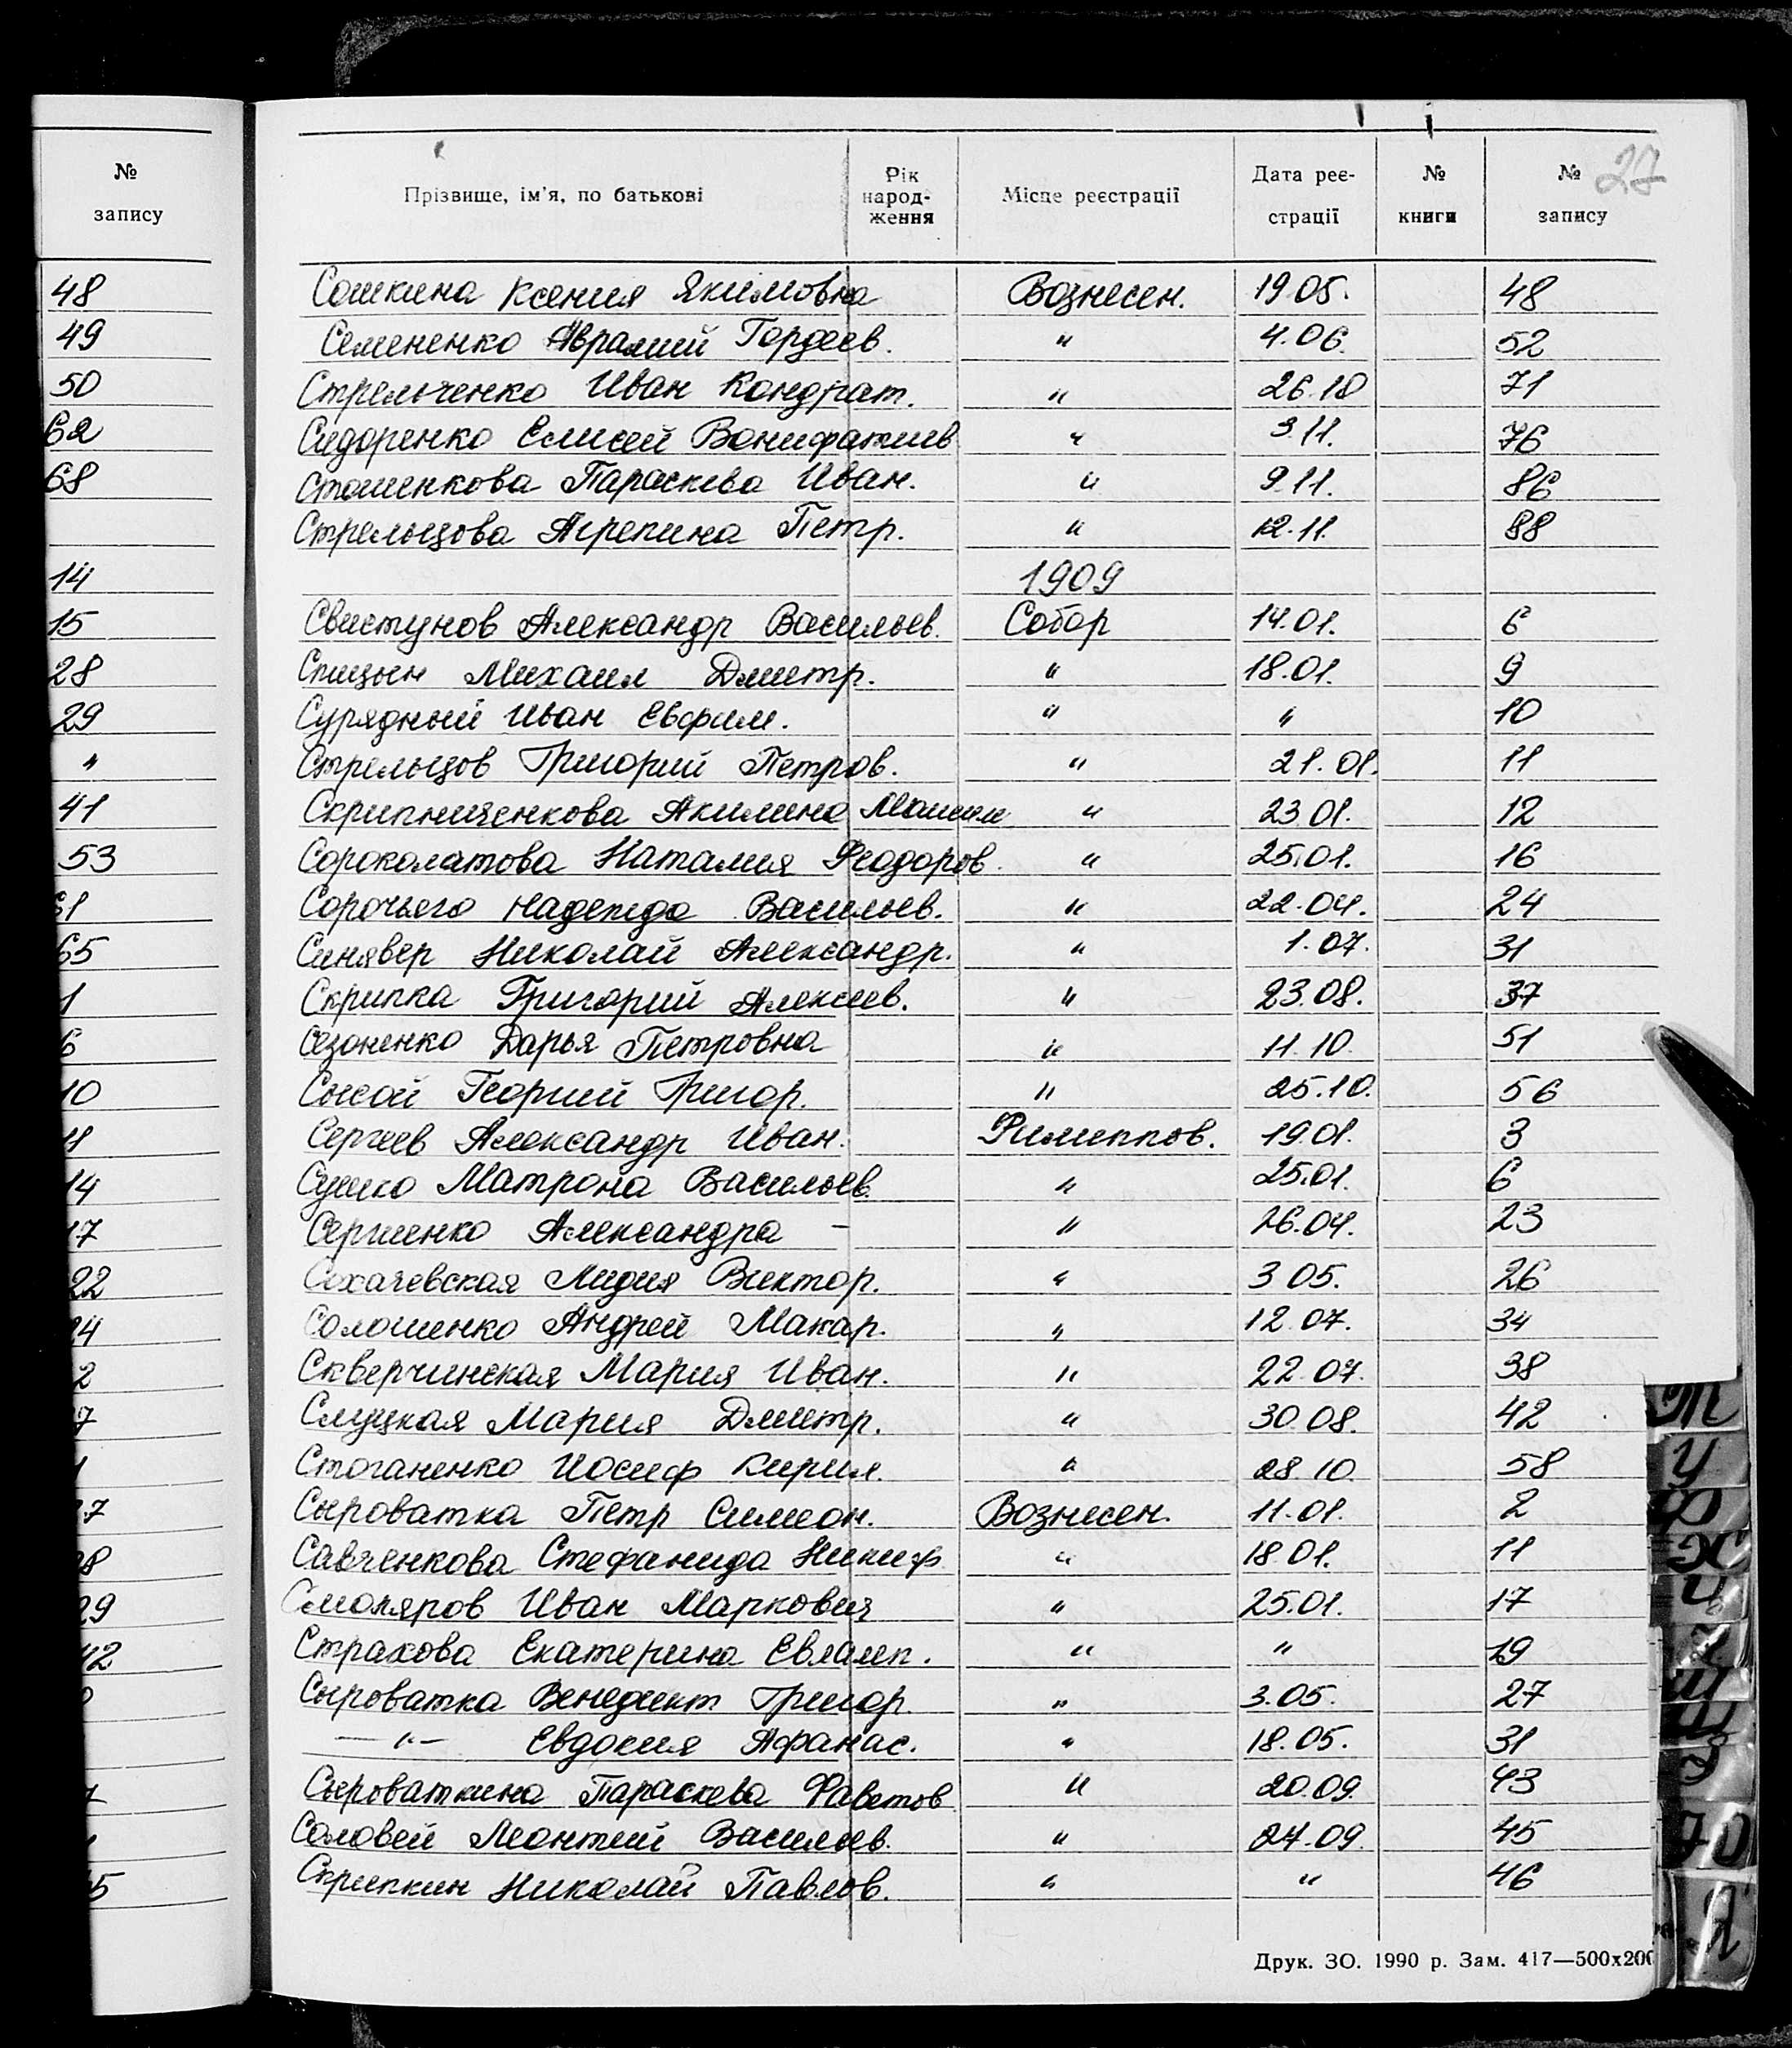 №
запису
48
49
50
62
68
14
15
28
29
"
41
53
61
65
1
6
10
11
14
17
22
24
2
7
1
27
28
29
42
0
7
1
45
27
Прізвище, ім'я, по батькові Рік народження Місце реєстрації Дата реєстрації № книги № запису
Сошкина Ксения Якимовна Вознесен. 19.05. 48
Семененко Аврамий Гордеев. " 4.06. 52
Стрельченко Иван Кондрат. " 26.10 71
Сидоренко Елисей Вонифатиев " 3.11. 76
Стошенкова Параскева Иван. " 9.11. 86
Стрельцова Агрепина Петр. " 12.11. 88
1909
Свистунов Александр Васильев. Собор 14.01. 6
Спицын Михаил Дмитр. " 18.01. 9
Сурядный Иван Евфим. " " 10
Стрельцов Григорий Петров. " 21.01. 11
Скрипниченкова Акилина Моисеи " 23.01. 12
Сороколатова Наталия Феодоров. " 25.01. 16
Сорочьего Надежда Васильев. " 22.04. 24
Синявер Николай Александр. " 1.07. 31
Скрипка Григорий Алексеев. " 23.08. 37
Сезоненко Дарья Петровна " 11.10. 51
Сысой Георгий Григор. " 25.10. 56
Сергеев Александр Иван. Филиппов. 19.01. 3
Сушко Матрона Васильев. " 25.01. 6
Сергиенко Александра – " 26.04. 23
Сохачевская Лидия Виктор. " 3 05. 26
Солошенко Андрей Макар. " 12.07. 34
Скверчинская Мария Иван. " 22.07. 38
Слуцкая Мария Дмитр. " 30.08. 42
Стоганенко Иосиф Кирил. " 28 10. 58
Сыроватка Петр Симеон. Вознесен. 11.01. 2
Савченкова Стефанида Никиф. " 18.01. 11
Смоляров Иван Маркович " 25.01. 17
Страхова Екатерина Евламп. " " 19
Сыроватка Венедикт Григор. " 3.05. 27
—"— Евдокия Афанас. " 18.05. 31
Сыроваткина Параскева Фавстов " 20.09. 43
Соловей Леонтий Васильев. " 24.09. 45
Скрипкин Николай Павлов. " " 46
Друк. ЗО. 1990 р. Зам. 417—500х200
Т
У
Ф
Х
Ц
Ч
Ш
Щ
Э
Ю
Я